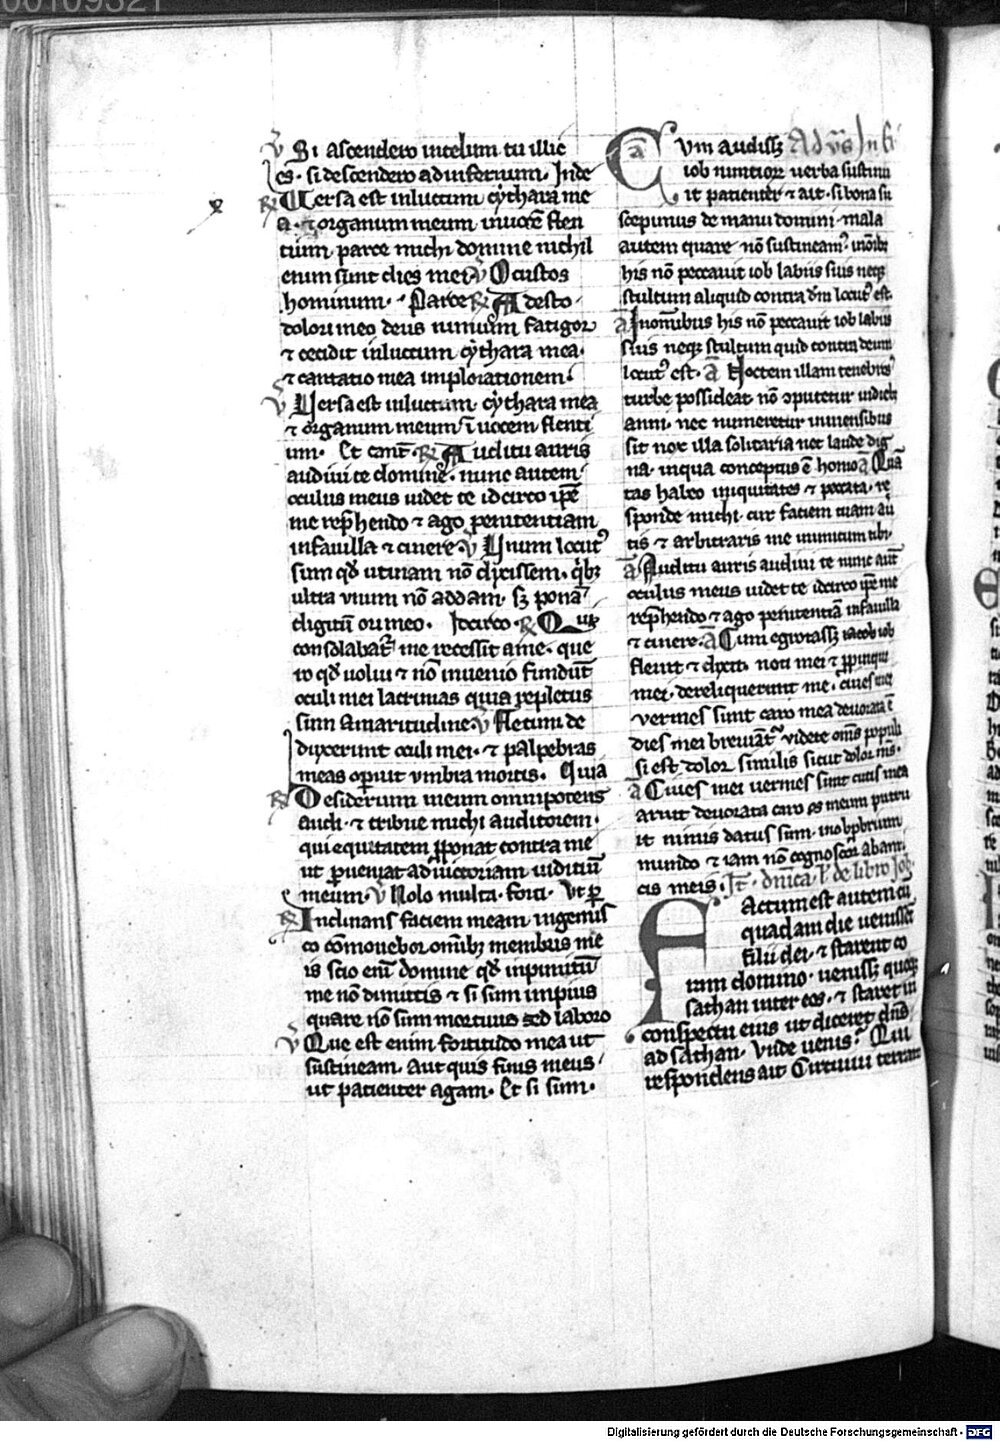 00109321
℣ Si ascendero in celum tu illic
es · si descendero ad infernum · Inde
℟ Versa est in luctum cẏthara me
a · ⁊ organum meum in uocē flen
tium parce michi domine nichil
enim sunt dies mei ℣ O custos
hominum · Parce ℟ Adesto ·
dolori meo deus nimium fatigor
⁊ cecidit in luctum cẏthara mea ·
⁊ cantatio mea in plorationem ·
℣ Versa est in luctum cẏthara mea
⁊ organum meum ī uocem flenti
um · Et cant̄ · ℟ Auditu auris
audiui te domine · nunc autem
oculus meus uidet te idcirco ip̄e
me rep̄hendo ⁊ ago penitentiam
in fauilla ⁊ cinere ℣ Vnum locut᷒
sum qd̄ utinam nō dixissem · q̄bꝫ
ultra unum nō addam · sꝫ ponā
digitū ori meo · Idcirco · ℟ Qui
consolabat᷑ me recessit a me · que
ro qd̄ uolui ⁊ nō inuenio fundūt
oculi mei lacrimas quia repletus
sum amaritudine ℣ Nectim de
dixerunt oculi mei · ⁊ palpebras
meas op̄uit vmbra mortis · Quia
℟ Desiderium meum omnipotens
audi · ⁊ tribue michi auditorem ·
qui equitatem p̄ponat contra me
ut p̱ueniat ad uictoriam iuditiū
meum · ℣ Nolo multa · forti · Vt p̱
℟ Inclinans faciem meam ingemis
co cōmouebor omībꝫ membris me
is scio enī domine qd̄ inpunitū
me nō dimittis ⁊ si sum impius
quare nō sum mortuus sed laboro
℣ Que est enim fortitudo mea ut
sustineam · Aut quis finis meus ·
ut patienter agam · Et si sum ·
Cum audissꝫ Ad vs̄
iob nuntioꝝ uerba sustinu
it patient̄ ⁊ ait · si bona su
scepimus de manu domini · mala
autem quare nō sustineam᷒ in oībꝫ
his nō peccauit iob labiis suis neqꝫ
stultum aliquid contra dm̄ locut᷒ est ·
a Inomnibus his nō peccauit iob labiis
suis neqꝫ stultum quid contra deum
locut᷒ est · a Noctem illam tenebros᷒
turbo possideat nō ꝯputetur in dieb᷒
anni · nec numeretur in mensibus
sit nox illa solitaria nec laude dig
na · in qua conceptus ē homo a Quā
tas habeo iniquitates ⁊ peccata · re
sponde michi · cur faciem tuam au
tis ⁊ arbitraris me inimicum tibi ·
a Auditu auris audiui te nunc aut̄
oculus meus uidet te idcirco ip̄e me
rep̄hendo ⁊ ago penitentiā in fauilla
⁊ cinere · a Cum egrotassꝫ iacob iob
fleuit ⁊ dixit · noti mei ⁊ p̄pinqui
mei · dereliquerunt me · ciues mei
vermes sunt caro mea deuorata ē
dies mei breuiāt᷑ videte om̄s populi
si est dolor similis sicut dolor m̄s ·
a Ciues mei vermes sunt cutis mea
aruit deuorata caro os meum putru
it nimis datus sum · in obp̄brium
mundo ⁊ iam nō cognoscor ab ami
cis meis · It̄ · dn̄ica · j · de libro Job ·
Factum est autem cū
quadam die uenissēt
filii dei · ⁊ starent co
ram domino · uenissꝫ quoqꝫ
sathan inter eos · ⁊ staret in
conspectu eius ut diceret dn̄s
ad sathan · Vnde uenis · Qui
respondens ait Circuiui terram
Digitalisierung gefördert durch die Deutsche Forschungsgemeinschaft - DFG